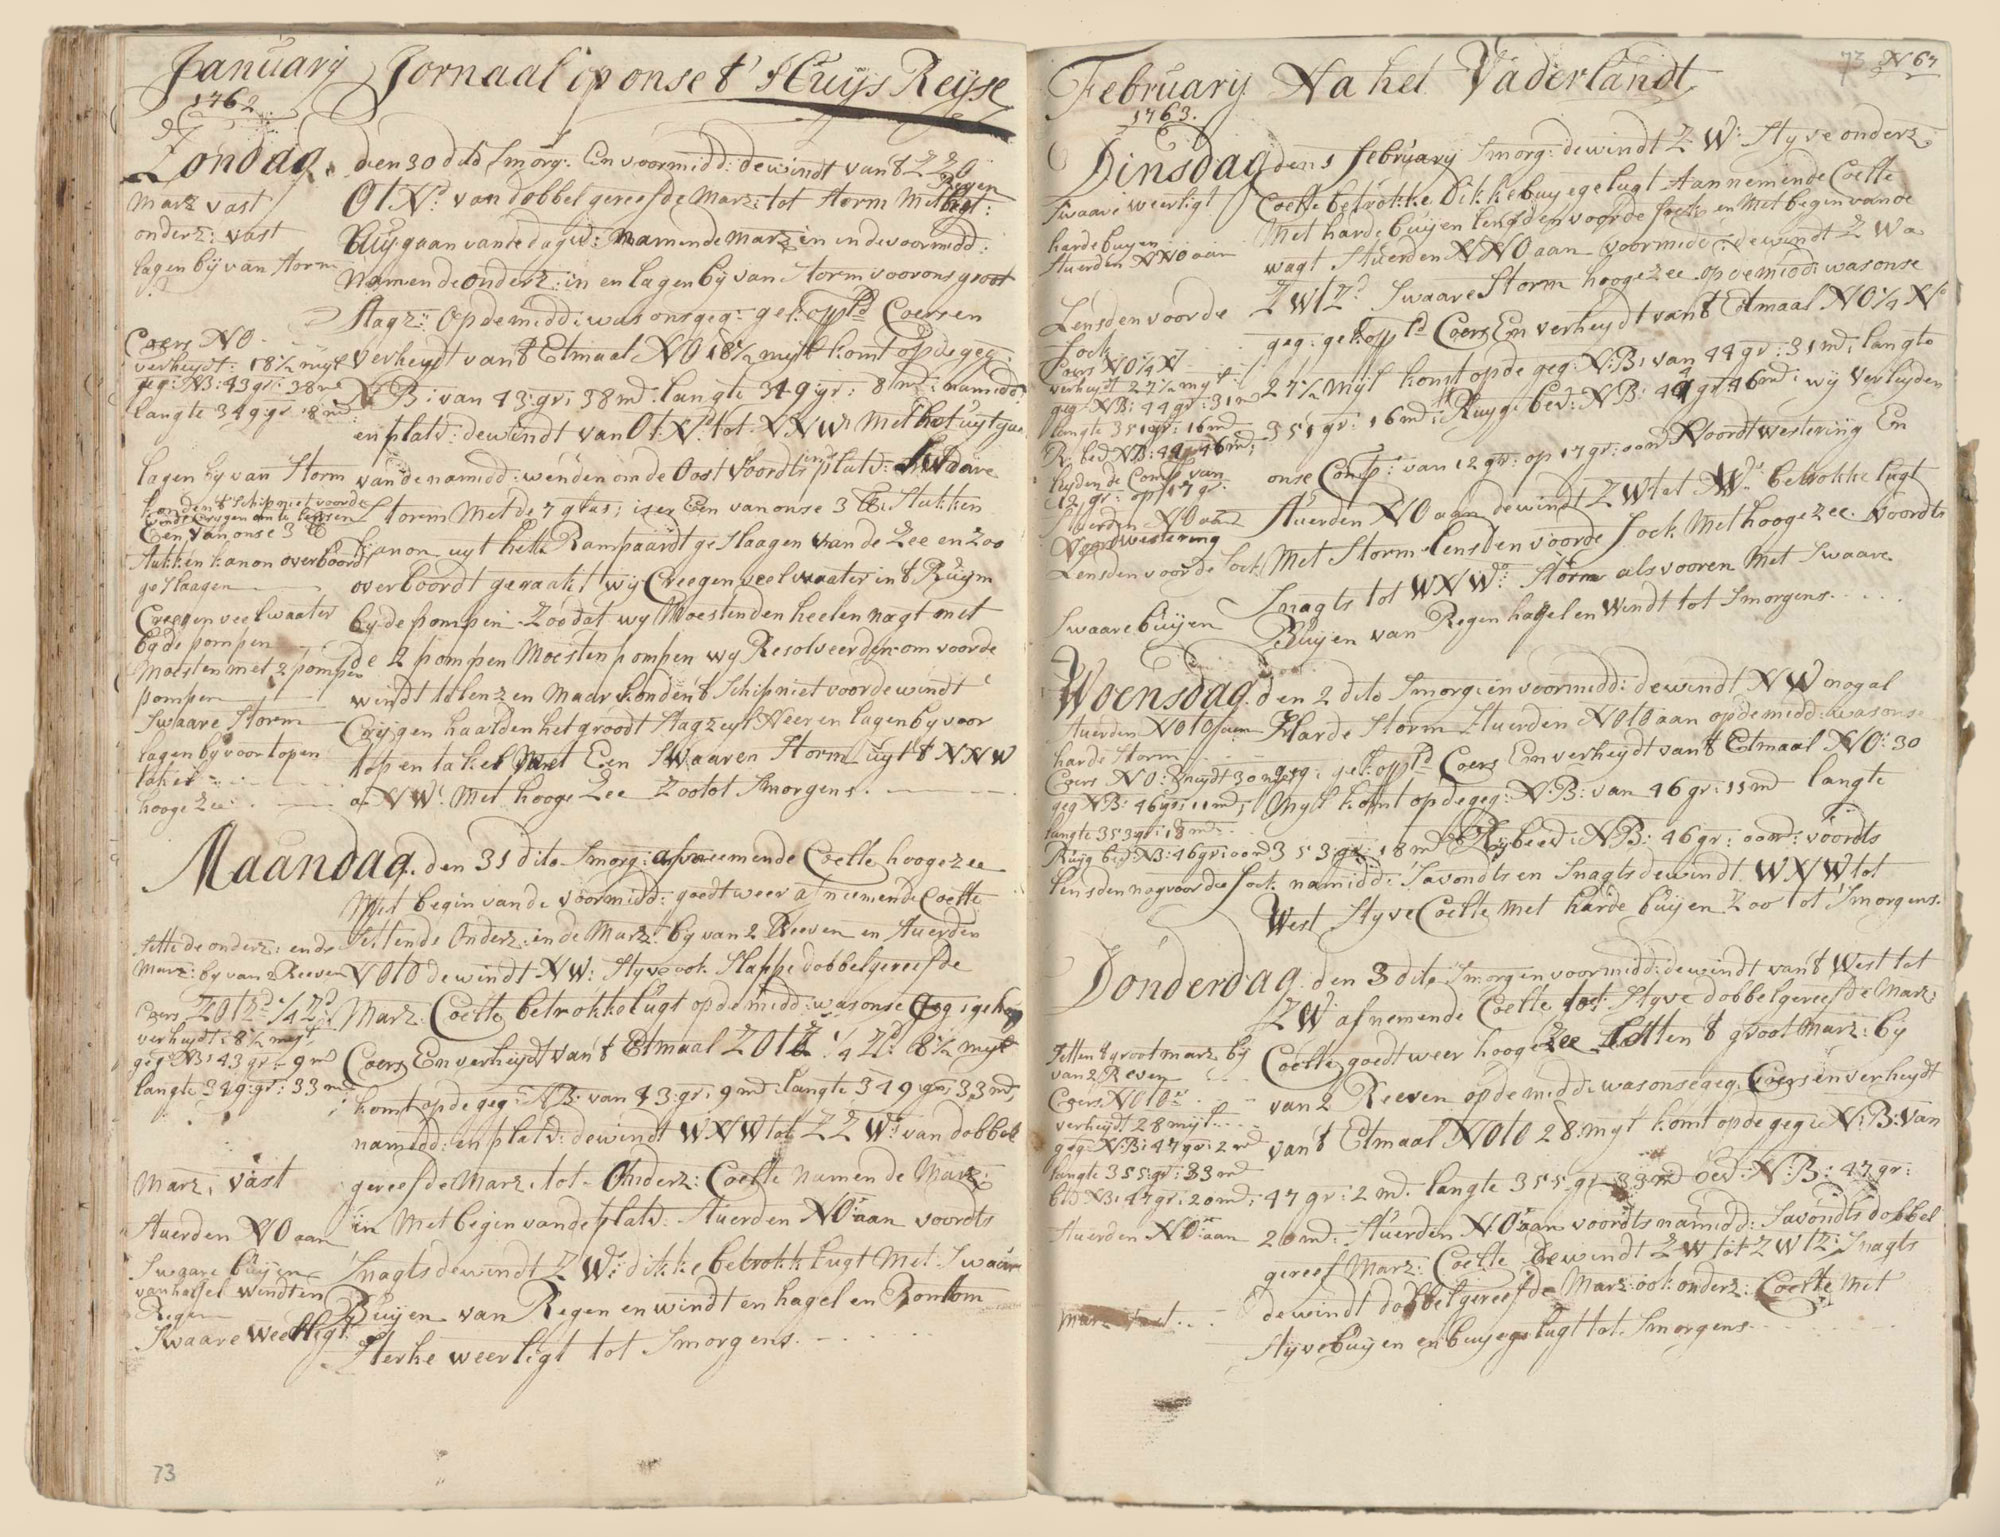 January Jornaal op onse t' Huys Reyse
1762
Zondag. den 30 dito Smorg: En voormidd: de windt van 't ZZO
Marz vast
onderz: vast
lagen bij van Storm
Ot N: van dobbel gereefde Marz: tot Storm Met Regen
buy gaan van de dagw: namen de Marz in in de voormidd:
Namen de onderz: in en lagen bij van Storm voor ons groot
Stagz: Op de midd: was ons geg: gekoppld Coers en
Coers NO
verheydt: 18½ myl
geg: NB: 43 gr: 38 md
langte 349 gr: 8 md:
verheydt van 't Etmaal NO 18½ myl komt op de geg:
N:B: van 43: gr: 38 md: langte 349 gr: 8 md: namidd:
en platv: de windt van Ot: N: tot NNW Met het uytgaan
lagen by van Storm
konden 't Schip niet voor de
windt krygen om te lensen
Een van onse 3 lb
Stukken kanon overboordt
geslaagen
van de namidd: wenden om de Oost voordts in platv: Swaare
Storm Met de 7 glas; is er Een van onse 3 lb: Stukken
kanon uyt hett Rampaardt geslaagen van de Zee en zoo
overboordt geraakt wij Creegen veel waater in 't Ruijm
Creegen veel waater
by de pompen
Moesten met 2 pompen
pompen
by de pompen Zoo dat wy Moesten den heelen nagt met
de 2 pompen Moesten pompen wy Resolveerden om voorde
windt te lenzen Maar konden 't Schip niet voor de windt
Swaare Storm
lagen by voor top en
takel
hooge Zee
Crijgen haalden het groodt Stagzeyl Neer en lagen by voor
top en takel Met Een Swaaren Storm uyt 't NNW
a NW: Met hooge Zee Zoo tot Smorgens.
Maandag. den 31 dito Smorg: afneemende Coelte hooge zee
Met begin van de voormidd: goedt weer afneemende Coelte
Sette de onderz: en de
Marz: by van 2 Reeven
Settende Onderz: in de Marz: by van 2 Reeven en Stuerden
NOtO de windt NW: Styve ook Slappe dobbelgereefde
Coers ZOtZd ¼ Zd:
verheydt: 8½ myl
geg: NB: 43 gr: 9 md
langte 349: gr: 33 md
Marz: Coelte betrokke lugt op de midd: was onse geg: gekop
Coers En verheydt van 't Etmaal ZOtZ ¼ Zd: 8½ myl
komt op de geg: NB: van 43: gr: 9 md: langte 349 gr: 33 md,
namidd: en platv: de windt WNW tot ZZW: van dobbel
Marz: vast
gereefde Marz: tot Onderz: Coelte namen de Marz:
in Met begin van de platv: Stuerden NO: aan voordts
Stuerden NO aan
Swaare buijen
van hagel windt en
Regen
Swaare Weerligt
Snagts de windt ZW: dikke betrokk lugt Met Swaare
Buijen van Regen en windt en hagel en Rontom
Sterke weerligt tot Smorgens.
73
February Na het Vaderlandt
73 N 67
1763.
Dinsdag den 1 february Smorg: de windt ZW: Styve onderz
Swaare weerligt
harde buyen
Stuerden NNO aan
Coelte betrokke Dikke buyege lugt Aannemende Coelte
Met harde buijen lensden voor de fock en Met begin van de
wagt Stuerden NNO aan voormidd: de windt ZW a
Lensden voor de
fock
ZWtZd Swaare Storm hooge zee op de midd: was onse
geg: gekoppld Coers En verheydt van 't Etmaal NO ¼ N:
Coers NO ¼ N
verheydt 27½ myl
geg: NB: 44 gr: 31 m
langte 351 gr: 16 md
R: bed NB: 44 gr 46 md;
27½ Mijl komt op de geg: N:B: van 44 gr: 31 md: langte
351 gr: 16 md: Ruyge bed: NB: 44 gr 46 md: wy Verleyden
leyden de Comp van
12 gr: op 17 gr:
Stuerden NO aan
Noordwestering
onse Comp: van 12 gr: op 17 gr: oomd Noordtwesterijng En
Stuerden NO aan de windt ZW tot W: betrokke lugt
Lensden voor de fock
Met Storm lensden voor de fock Met hooge zee. Voordts
Snagts tot WNW: Storm als vooren Met Swaare
Swaare buijen
Buijen van Regen hagel en Windt tot Smorgens.
Woensdag. den 2 dito Smorg: in voormidd: de windt NW nog al
Stuerden NOtO aan
harde Storm
Harde Storm Stuerden NOtO aan op de midd: was onse
Coers NO: verheydt 30 myl
geg NB: 46 gr: 11 md;
langte 353 gr: 18 md
geg: gekoppld Coers En verheydt van 't Etmaal NO: 30
Myl komt op de geg: N:B: van 46 gr: 11 md langte
Ruijg bed: NB: 46 gr: oomd
353: gr: 18 md Ruybed: NB: 46 gr: oomd: voordts
lensden nog voor de fock
namidd: Savondts en Snagts de windt WNW tot
West Styve Coelte Met harde buijen Zoo tot Smorgens.
Donderdag. den 3 dito Smorg in voormidd: de windt van 't West tot
ZW: afnemende Coelte tot: Styve dobbelgereefde Marz
Setten 't groot marz by
van 2 Reeven
Coelte goedt weer hooge Zee Setten 't groot Marz: by
Coers NOtO
verheydt 28 myl
geg: N:B: 47 gr: 2 md
langte 355: gr: 33 md
bed NB: 47 gr: 20 md;
van 2 Reeven op de midd: was onse geg: Coers en verheydt
van 't Etmaal NOtO 28: myl komt op de geg: N:B: van
47 gr: 2 md. langte 355 gr 33 md bed: N:B: 47 gr:
Stuerden NO: aan
20 md: Stuerden NO: aan voordts namidd: Savondts dobbel
gereef Marz: Coelte de windt ZW tot ZWtZ: Snagts
Marz vast
de windt dobbelgereefde Marz: ook onderz: Coelte Met
Stijve buijen en buyege lugt tot Smorgens